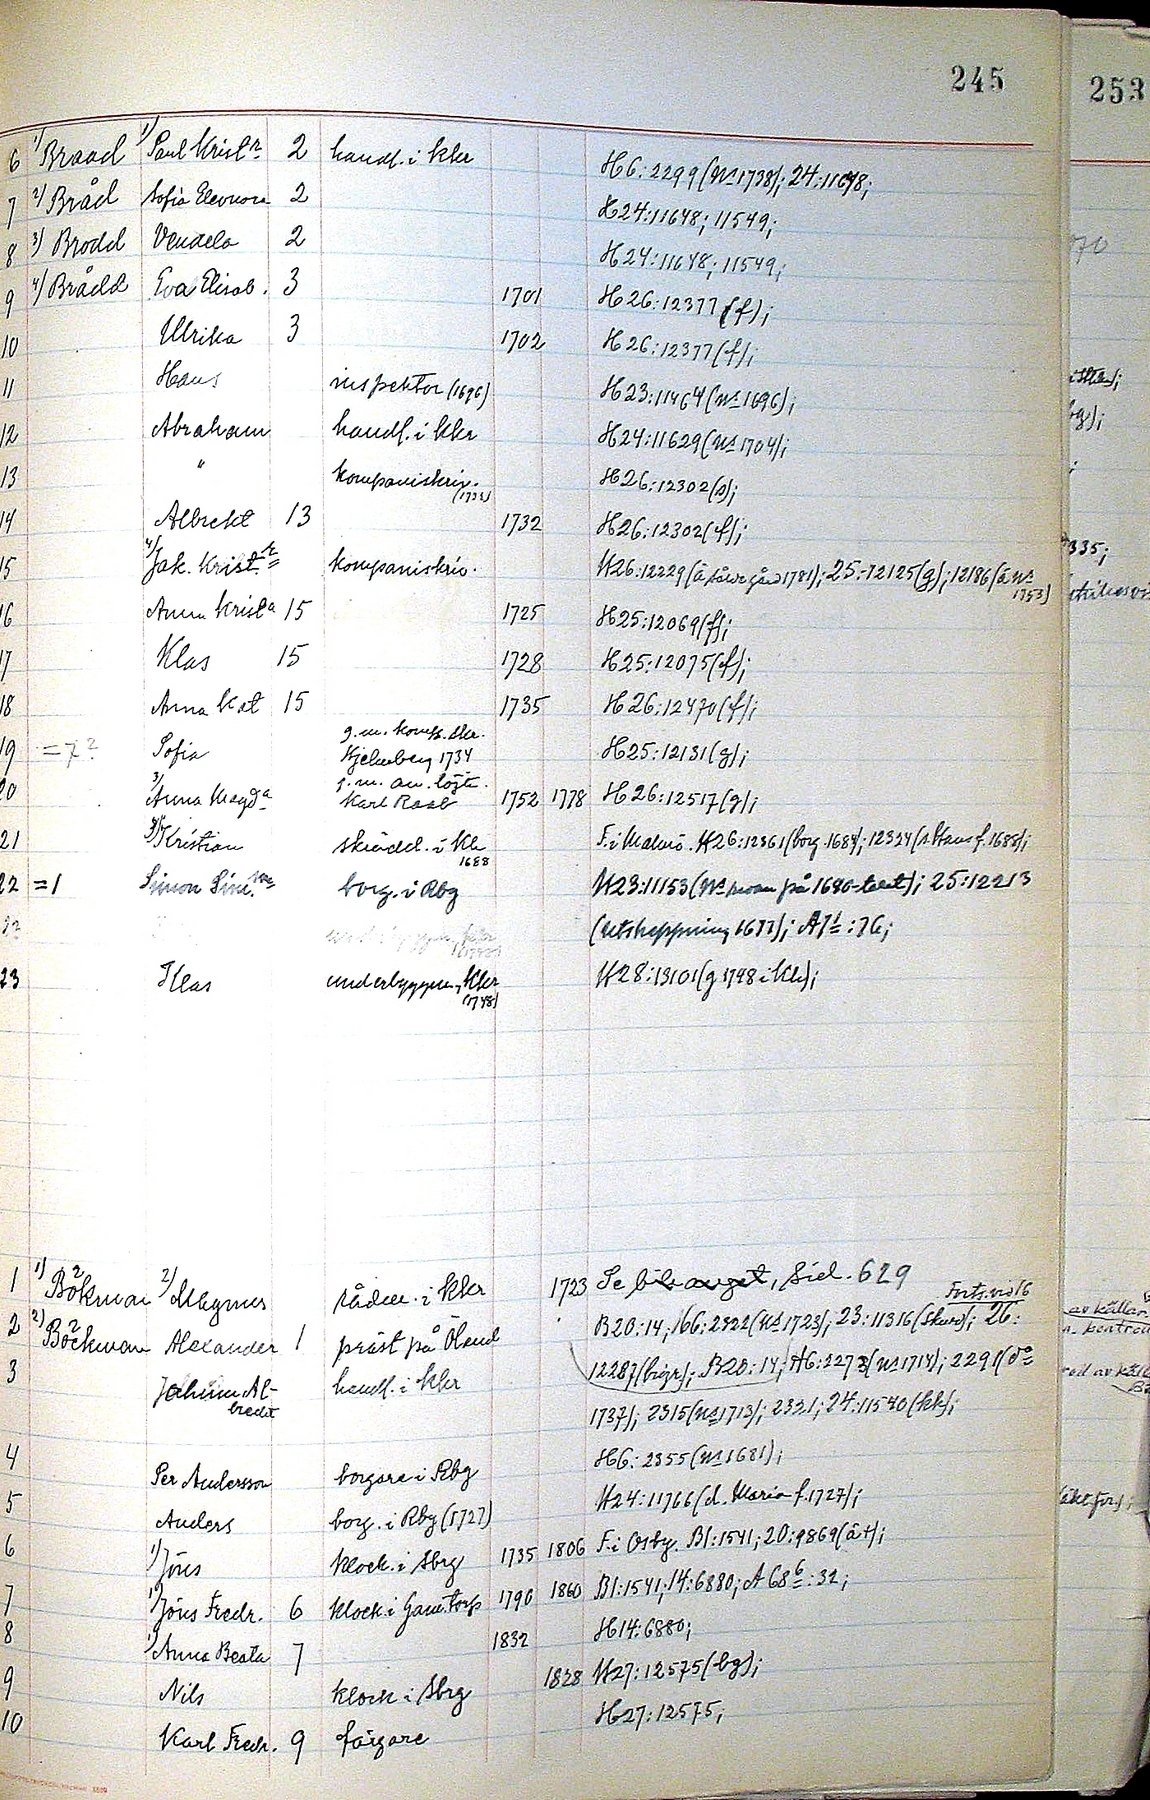 245
253
6 1) Braad 1) Paul Krist:r 2 handl. i Kkr H6:2299 (nr 1738); 24:11648;
7 2) Bråd Sofia Eleonora 2 H24:11648; 11549;
8 3) Brodd Vendela 2 H24:11648; 11549;
9 4) Brådd Eva Elisab. 3 1701 H26:12377 (f);
10 Ulrika 3 1702 H26:12377 (f);
11 Hans inspektor (1696) H23:11464 (nr 1696);
12 Abraham handl. i Kkr H24:11629 (nr 1704);
13 " kompaniskriv. (1732) H26:12302 (s);
14 Albrekt 13 1732 H26:12302 (f);
15 4) Jak. Krist:r kompaniskriv. H26:12229 (å 1781); 25:12125 (g); 12186 (å nr 1753)
16 Anna Krist:a 15 1725 H25:12069 (f);
17 Klas 15 1728 H25:12075 (f);
18 Anna Kat 15 1735 H26:12470 (f);
19 = 7? Sofia g.m. komp.skr. Kjelberg 1734 H25:12131 (g);
20 3) Anna Magd:a g.m. au. löjt. Karl Raab 1752 1778 H26:12517 (g);
21 Kristian skrädd. i Kh 1688 F. i Malmö. H26:12361 (borg. 1684); 12324 (s. Hans f. 1688);
22 = 1 Simon Sim. borg. i Rbg H23:11153 (nr på 1680-talet); 25:12213
(utskeppning 1677); A71:76;
23 Klas underbyggm. Kkr (1748) H28:13101 (g 1748 i Kh);
1 1) Bökman 2) Magnus rådm. i Kkr 1723 Se Sid. 629
Forts. vid 16
2 2) Böckman Alexander 1 präst på Öland B20:14; 166:2322 (nr 1723); 23:11316 (skuld); 26:
3 Johan Albredt handl. i Kkr 12287 (bigr); B20:14; H6:2273 (nr 1714); 2291 (do
1737); 2315 (nr 1713); 2321; 24:11540 (kk);
4 Per Andersson borgare i Rbg H6:2355 (nr 1681);
5 Anders borg. i Rbg (1727) H24:11766 (d. Maria f. 1727);
6 1) Jöns klock. i Sbrg 1735 1806 F. i Osby. B1:1541; 20:9869 (å+);
7 1) Jöns Fredr. 6 klock. i Gam.torp 1790 1860 B1:1541; 14:6880; A686:32;
8 1) Anna Beata 7 1832 H14:6880;
9 Nils klock i Sbrg 1828 H27:12575 (bg);
10 Karl Fredr. 9 färgare H27:12575;